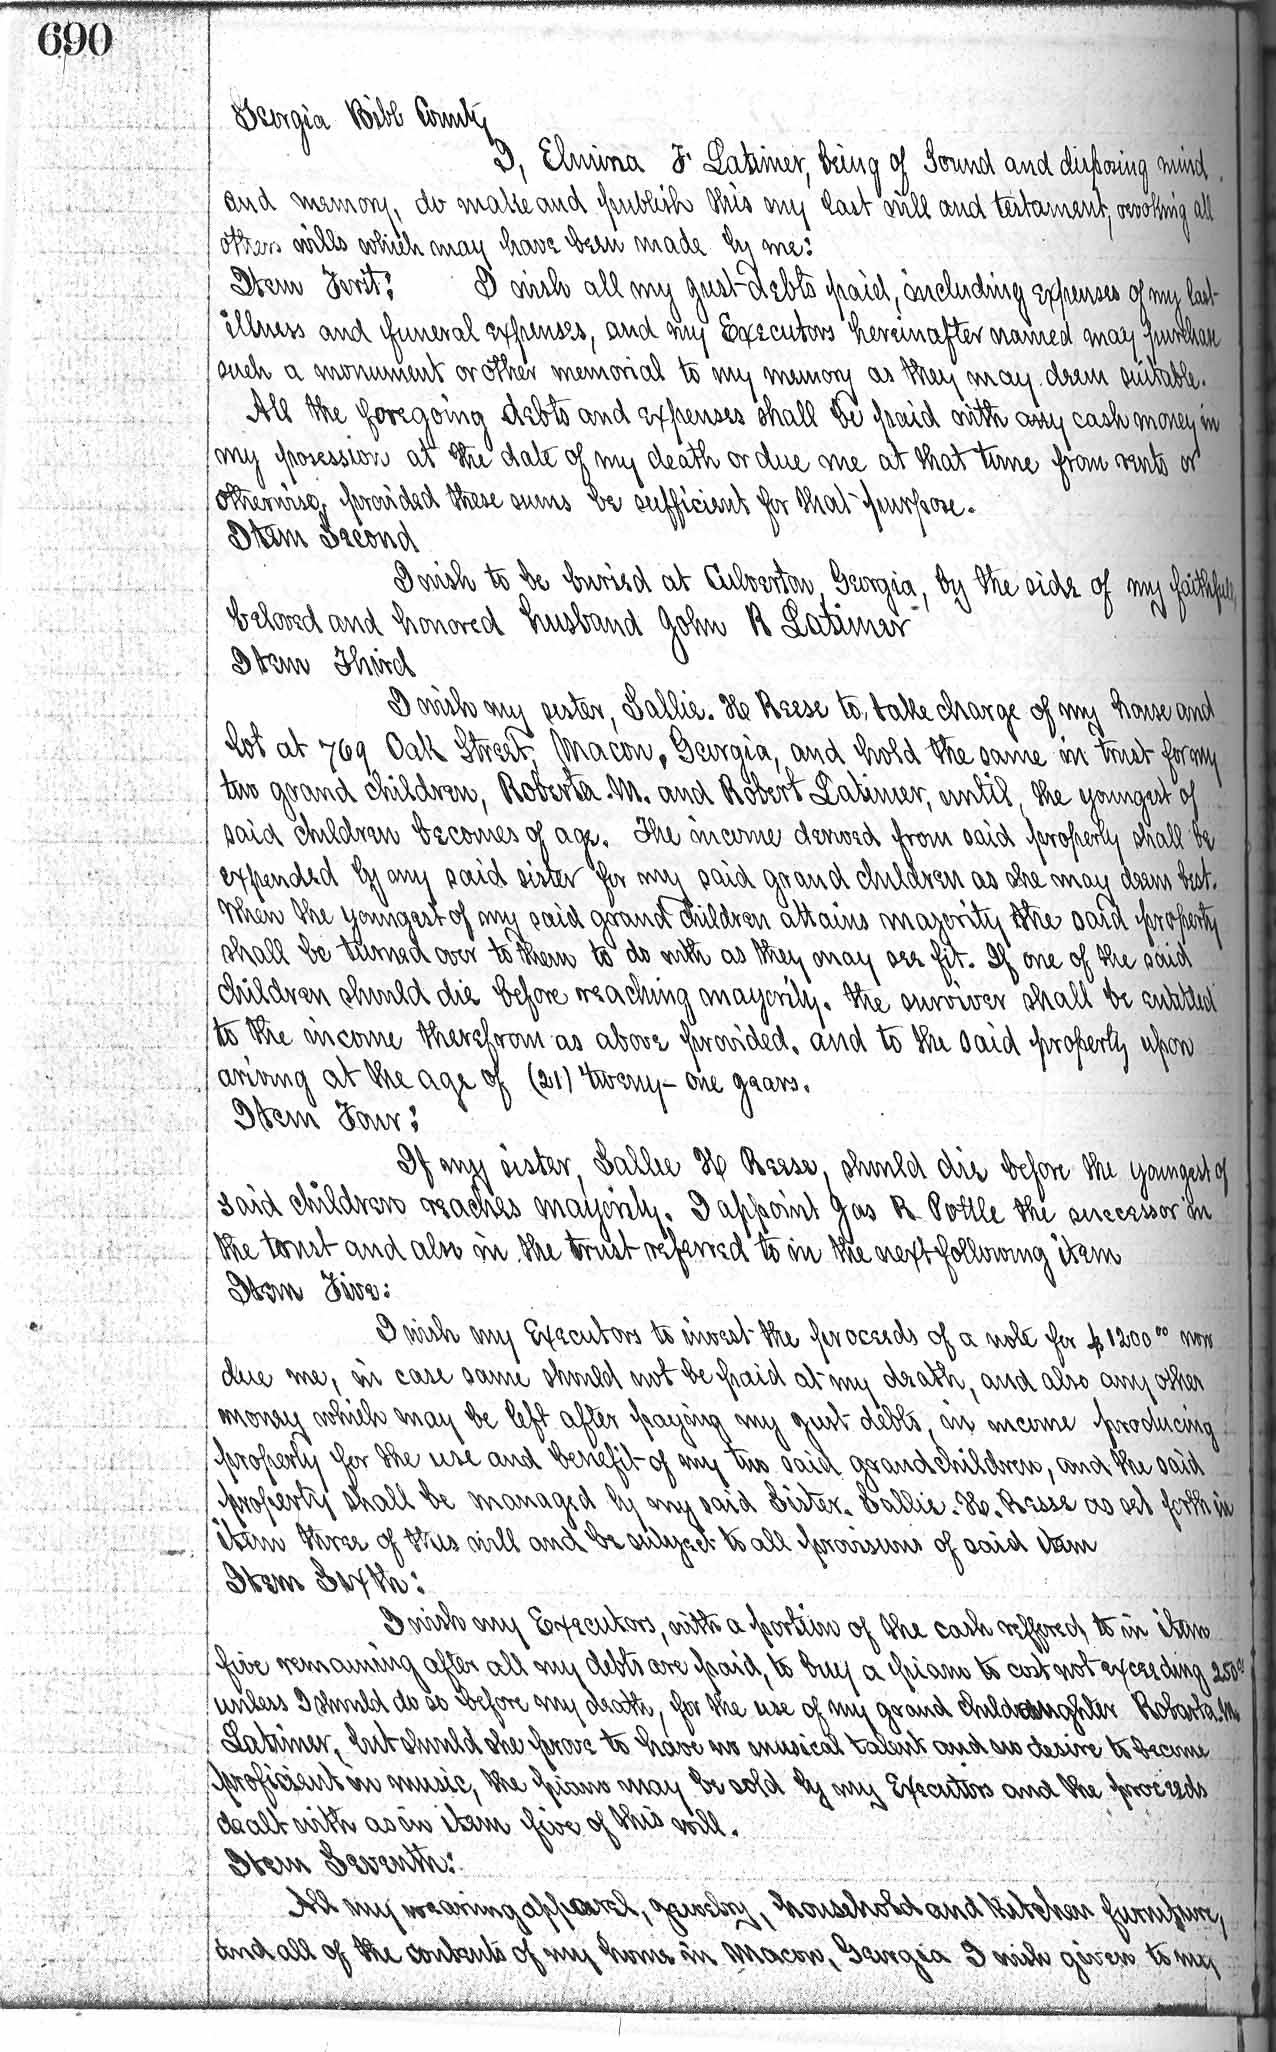 690
Georgia Bibb County
I, Elmina F Latimer, being of sound and disposing mind
and memory, do make and publish this my last will and testament, revoking all
others wills which may have been made by me:
Item First: I wish all my just debts paid, including expenses of my last
illness and funeral expenses, and my Executors hereinafter named may purchase
such a monument or other memorial to my memory as they may deem suitable.
All the foregoing debts and expenses shall be paid with any cash money in
my posession at the date of my death or due me at that time from rents or
otherwise, provided these sums be sufficient for that purpose.
Item Second
I wish to be buried at Culverton, Georgia, by the side of my faithfull,
beloved and honored husband John R Latimer
Item Third
I wish my sister, Sallie. H. Reese to, take charge of my house and
lot at 769 Oak Street, Macon, Georgia, and hold the same in trust for my
two grand children, Roberta. M. and Robert Latimer, until, the youngest of
said children becomes of age. The income derived from said property shall be
expended by my said sister for my said grand children as she may deem best.
When the youngest of my said grand children attains majority the said property
shall be turned over to them to do with as they may see fit. If one of the said
children should die before reaching mayority. the surviver shall be entitled
to the income therefrom as above provided. and to the said property upon
ariving at the age of (21) twenty-one years.
Item Four:
If my sister, Sallie H Reese, should die before the youngest of
said children reaches mayority. I appoint Jas R. Pottle the successor in
the trust and also in the trust referred to in the next following item
Item Five:
I wish my Executors to invest the proceeds of a note for $1200 00 now
due me, in case same should not be paid at my death, and also any other
money which may be left after paying my just debts, in income producing
property for the use and benefit of my two said grandchildren, and the said
property shall be managed by my said Sister. Sallie. H. Reese as set forth in
item three of this will and be subject to all provisions of said item
Item Sixth:
I wish my Executors, with a portion of the cash reffered to in item
five remaining after all my debts are paid, to buy a piano to cost not exceeding 250 00
unless I should do so before my death, for the use of my grand daughter Roberta. M.
Latimer, but should she prove to have no musical talent and no desire to become
proficient in music, the piano may be sold by my Executors and the proceeds
dealt with as in item five of this will.
Item Seventh:
All my wearing apparel, jewelry, household and Kitchen furniture,
and all of the contents of my home in Macon, Georgia I wish given to my